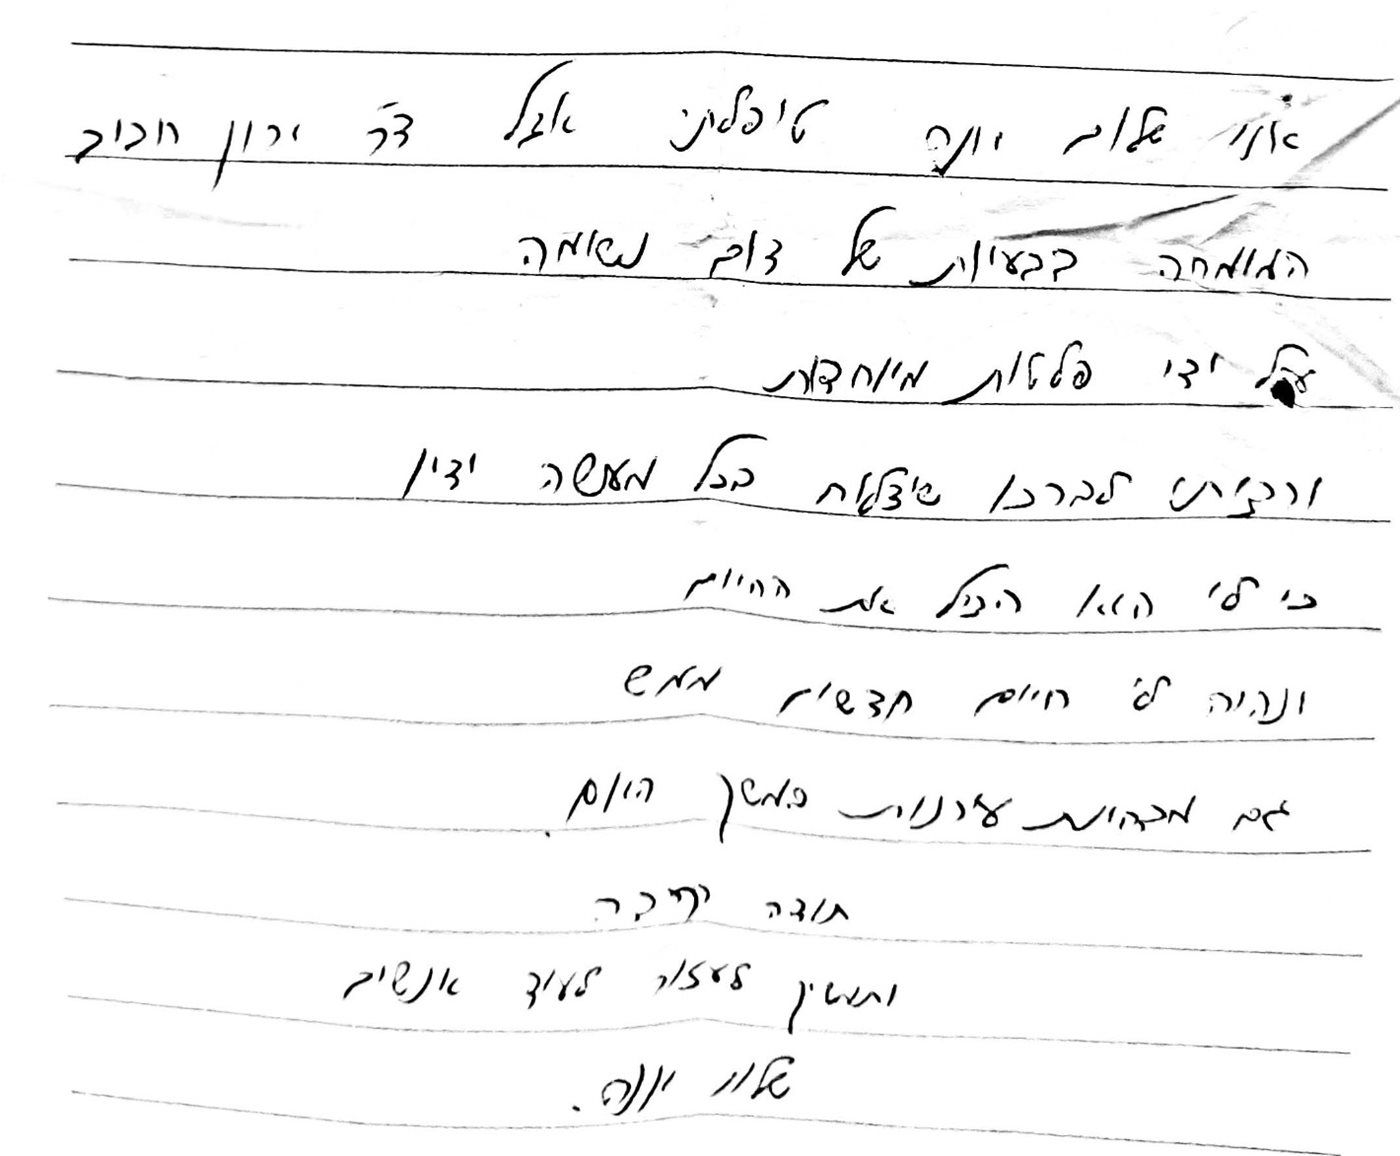 אני שלום יונה טיפלתי אצל ד"ר ירון חביב
המומחה בבעיות של דום נשימה
על ידי פלטות מיוחדות
ורציתי לברכו שיצליח בכל מעשה ידיו
כי לי הוא הציל את החיים
ונהיה לי חיים חדשים ממש
גם מבחינת ערנות במשך היום.
תודה רבה
ותמשיך לעזור לעוד אנשים
יונה.